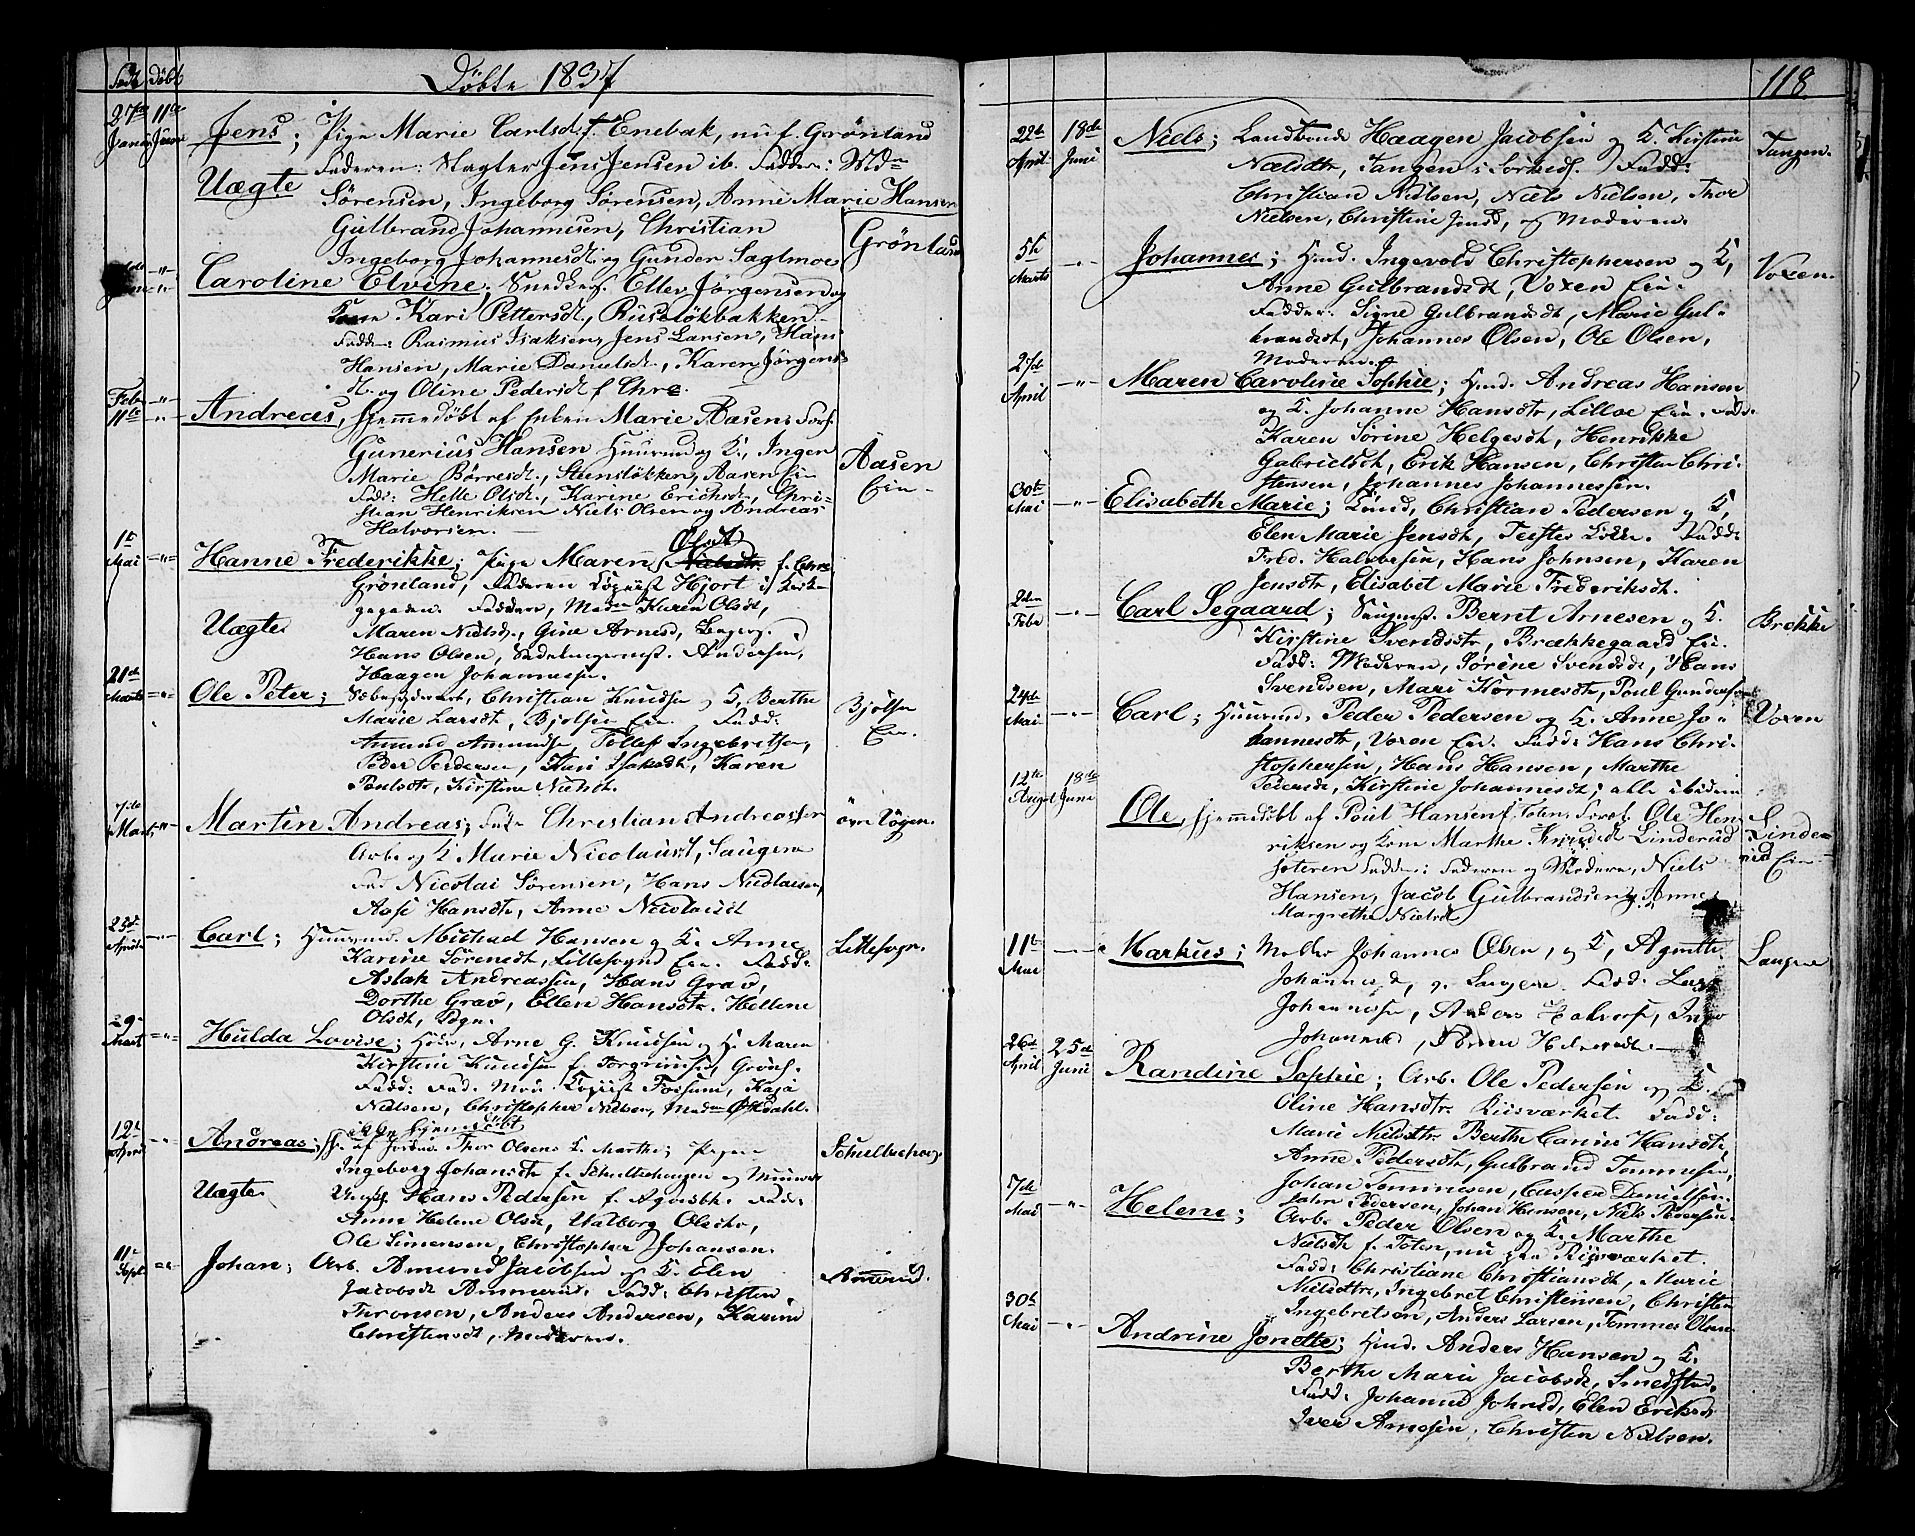 Født Döbt Döbte 1837
27de 11te
Janu. Juni
Jens; Pige Marie Carlsdt. f. Enebak, nu f. Grönland
Faderen: Slagter Jens Jensen ib. Faddr: Mdm
Uægte Sörensen, Ingeborg Sörensen, Anne Marie Hansen
Gulbrand Johannesen, Christian Grönland
Ingeborg Johannesdt. og Gunder Saglmoe
Caroline Elvine; Snedkers. Ellev Jörgensen og
Kone Kari Pettersdt., Ruseløkbakken
Fadd: Rasmus Isaksen, Jens Larsen, Hans
Hansen, Marie Danielsdt., Karen Jörgens
dt. og Oline Pedersdt f Chra.
Febr.
11te Andreas, hjemmedöbt af Enken Marie Aasen. Forf.
Gunerius Hansen Huusmd og K. Inger
Marie Börresdt., Steenslökken, Aasen Ei- Aasen
Fadd: Helle Olsdt., Karine Erichsdt., Chri- Eie
stian Henriksen Niels Olsen og Andreas
Halvorsen.
1ste Olsdt
Mai Hanne Frederikke; Pige Maren f. Chra
Grönland, Faderen Copiist Hjort i Kirke-
gaden. Faddere, Madm Karen Olsdt,
Uægte Maren Nielsd., Gine Arnesd,
Hans Olsen, Sadelmagermst. Andersen,
Haagen Johannesen.
21de
Marts Ole Peter; Christian Knudsen og K. Berthe
Marie Larsdt, Bjölsen Eie. Fadd: Bjölsen
Amund Amundsen, Tollef Ingebretsen, Eie.
Peder Pedersen, Kari Isaksdt, Karen
Paulsdt, Kirstine Nielsdt.
7de
Mart. Martin Andreas; Christian Andreassen övre Vögen.
Arb. og K Marie Nicolaisdt, Saugene
Fad Nicolai Sörensen, Hans Nicolaisen,
Aase Hansdtr, Anne Nicolaisdt
23de
April Carl; Huusmd. Michael Hansen og K. Anne
Karine Sörensdt, Lillesogn Eie. Fadd: Lillesogn.
Aslak Andreassen, Hans Grav,
Dorthe Grav, Ellen Hansdtr. Hellene
Olsdt, Sogn.
29de
Mart Hulda Lovise; Arne G. Knudsen og H. Maren
Kirstine Knudsen f. Torgrimsen, Grönl.
Fadd: Fad. Mod. Copiist Fossum, Kaja
Nielsen, Christopher Nielsen, Madm Östdahl.
12te hjemdöbt
April Andreas; af Jordm. Thor Olsens K. Marthe; Pigen Schultzehoug
Ingeborg Johansdt f. Schultzehougen og
Uægte Hans Pedersen f. Agersbk. Fadd:
Anne Helene Olsdt, Valborg Olsdtr,
Ole Simensen, Christopher Johansen.
11te
Sept. Johan; Arb. Amund Jacobsen og K. Elen
Jacobsdt Ammerud; Fadd: Christen Amerud.
Thronsen, Anders Andersen, Karine
Christensdt, Moderen.
118
22de 18de
April Juni
Niels; Landbonde Haagen Jacobsen og K. Kirstine
Nielsdtr, Tangen i Sörkedl. Fadd: Tangen.
Christian Nielsen, Niels Nielsen, Thor
Nielsen, Christine Jensd, og Moderen.
5te
Marts Johannes; Hmd. Ingevold Christophersen og K,
Anne Gulbrandsdt, Voxen Eie. Voxen
Fadder. Signe Gulbrandsdt, Marie Gul-
brandsdt, Johannes Olsen, Ole Olsen,
Moderen.
27de
April Maren Caroline Sophie; Hmd. Andreas Hansen
og K. Johanne Hansdtr, Lilloe Eie. Fadd:
Karen Sörine Helgesdt, Henrikke
Gabrielsdt, Erik Hansen, Christen Chri-
stensen, Johannes Johannessen.
30te
Mai Elisabeth Marie; Christian Pedersen og K,
Elen Marie Jensdt, Teistes Lökke. Fadd:
Fred. Halvorsen, Hans Johnsen, Karen
Jensdtr, Elisabet Marie Frederiksdt.
2den
Febr Carl Segaard; Saugmst. Bernt Arnesen og K.
Kirstine Svendsdtr, Brækkegaard Eie. Brekke
Fadd: Moderen, Sörine Svendsdt, Hans
Svendsen, Mari Kormesdt, Poul Gundersen
24de
Mai Carl; Huusmd. Peder Pedersen og K. Anne Jo- Voxen
hannesdt, Voxen Eie. Fadd: Hans Chri-
stophersen, Hans Hansen, Marthe
Pedersdt, Kirstine Johannesdt; alle ibidem
12te 18de
August Juni
Ole, hjemmedöbt af Poul Hansen f. Toten, Foræl. Ole Hen
riksen og Kone Marthe Linderud Linde
Fadd: Faderen og Moderen, Niels rud
Hansen, Jacob Gulbrandsen, Anne Eie
Margrethe Nielsdt
11te
Mai Markus; Möller Johannes Olsen, og K, Agnethe
Johannesdt, Saugene. Fadd: Lars Saugene
Johannesen, Anders Halvors.,
Johannesd, Maren
26de 25de
April Juni
Randine Sophie; Arb. Ole Pedersen og K.
Oline Hansdtr. Riisværket. Fadd:
Marie Nielsdtr. Berthe Carine Hansdt,
Anne Pedersdt, Gulbrand Tommesen,
Johan Tommesen, Casper Danielsen.
John Pedersen, Johan Hansen, Niels Pedersen.
7de
Mai Helene; Arb. Peder Olsen og K. Marthe
Nielsdt f. Toten, nu fra Riisværket.
Fadd: Christiane Christiansdt, Marie
Nielsdtr, Ingebret Christensen, Christen
Ingebretsen, Anders Larsen, Tommes Olsen
30te
Mai Andrine Jonette; Hmd. Anders Hansen og K.
Berthe Marie Jacobsdt, Smedstad,
Fadd: Johanne Johnsd, Elen Eriksd
Iver Arnesen, Christen Nielsen.